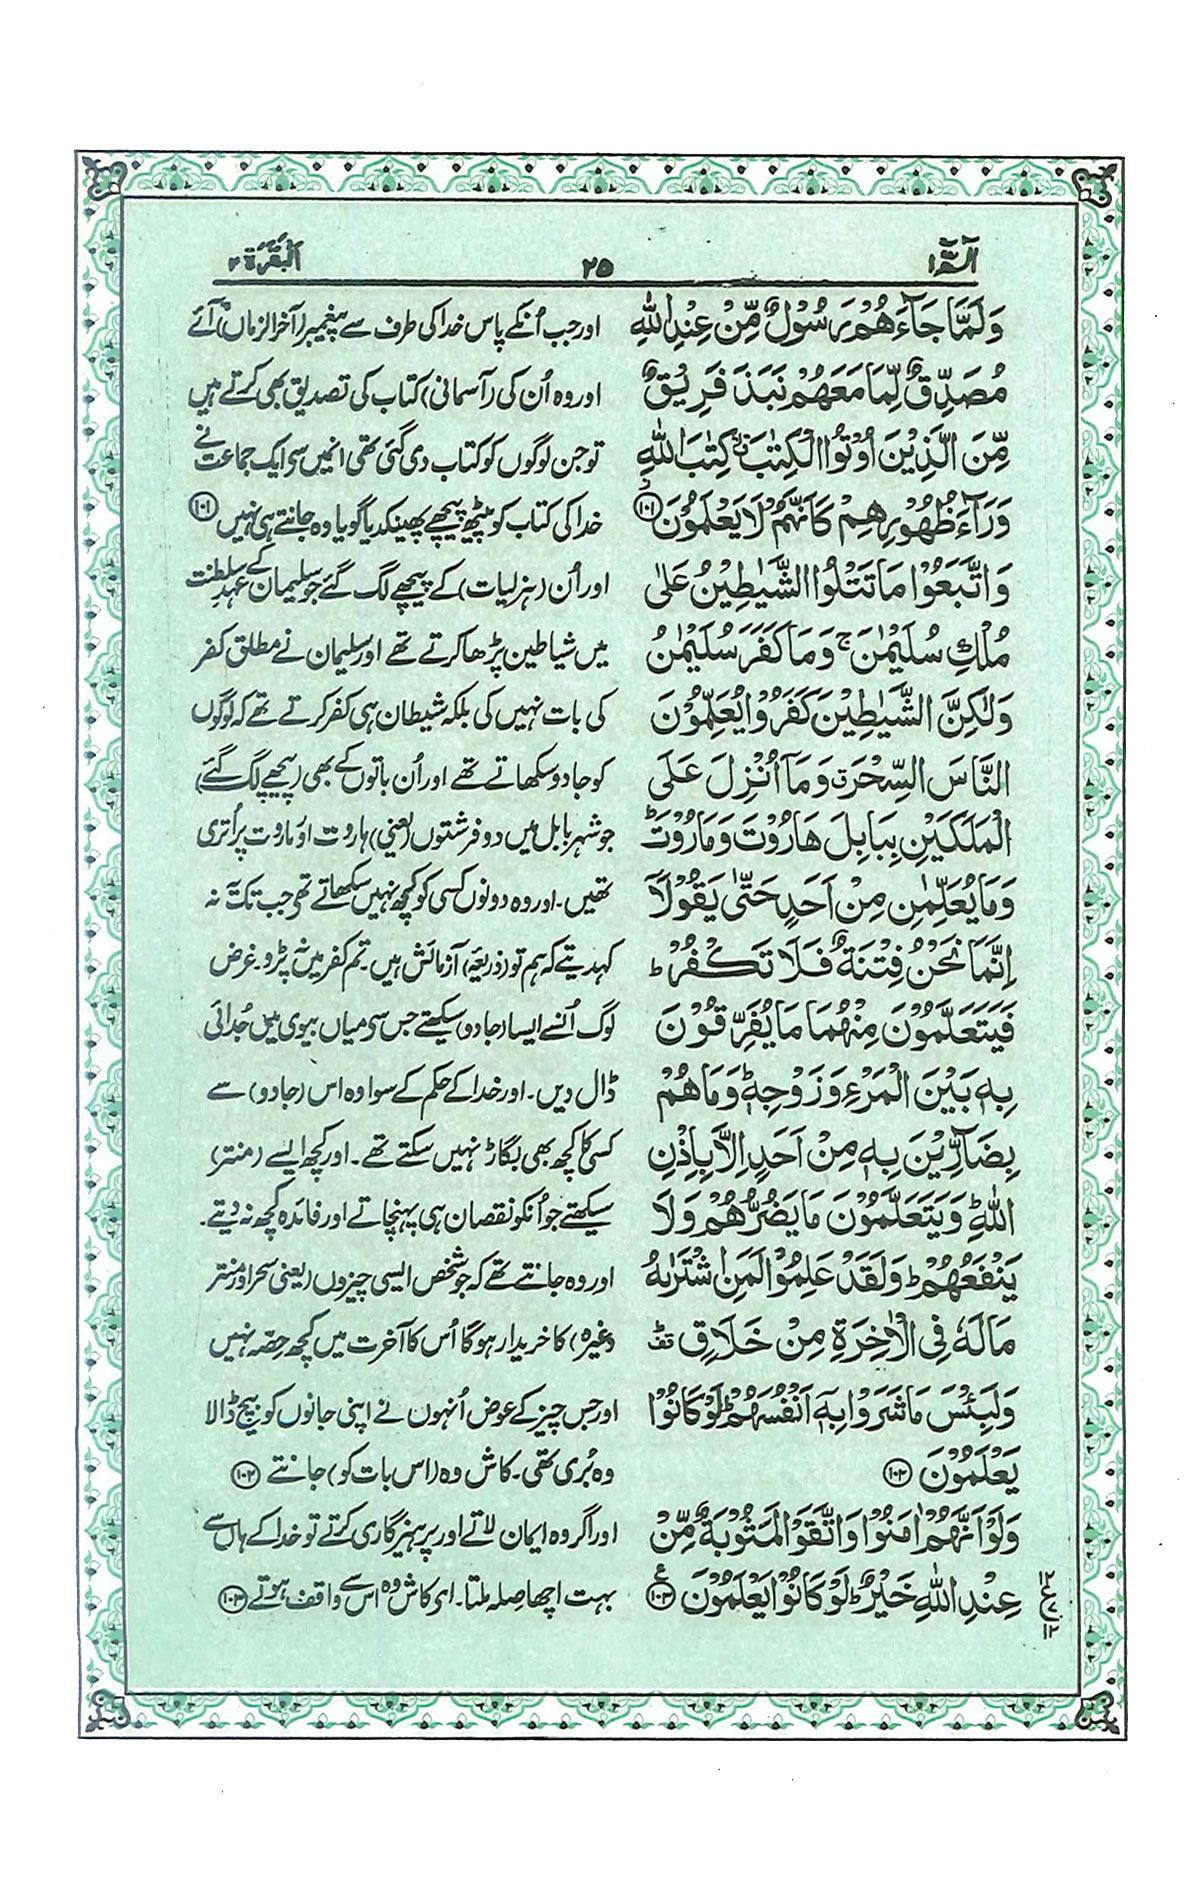 الٓمّٓ ١
٢٥
اَلْبَقَرَة ٢
وَلَمَّا جَآءَهُمْ رَسُوْلٌ مِّنْ عِنْدِ اللّٰهِ
مُصَدِّقٌ لِّمَا مَعَهُمْ نَبَذَ فَرِيْقٌ
مِّنَ الَّذِيْنَ اُوْتُوا الْكِتٰبَ ۙ كِتٰبَ اللّٰهِ
وَرَآءَ ظُهُوْرِهِمْ كَاَنَّهُمْ لَا يَعْلَمُوْنَ ۝١٠١
وَاتَّبَعُوْا مَا تَتْلُوا الشَّيٰطِيْنُ عَلٰى
مُلْكِ سُلَيْمٰنَ ۚ وَمَا كَفَرَ سُلَيْمٰنُ
وَلٰكِنَّ الشَّيٰطِيْنَ كَفَرُوْا يُعَلِّمُوْنَ
النَّاسَ السِّحْرَ ۤ وَمَآ اُنْزِلَ عَلَى
الْمَلَكَيْنِ بِبَابِلَ هَارُوْتَ وَمَارُوْتَ ؕ
وَمَا يُعَلِّمٰنِ مِنْ اَحَدٍ حَتّٰى يَقُوْلَآ
اِنَّمَا نَحْنُ فِتْنَةٌ فَلَا تَكْفُرْ ؕ
فَيَتَعَلَّمُوْنَ مِنْهُمَا مَا يُفَرِّقُوْنَ
بِهٖ بَيْنَ الْمَرْءِ وَزَوْجِهٖ ؕ وَمَا هُمْ
بِضَآرِّيْنَ بِهٖ مِنْ اَحَدٍ اِلَّا بِاِذْنِ
اللّٰهِ ؕ وَيَتَعَلَّمُوْنَ مَا يَضُرُّهُمْ وَلَا
يَنْفَعُهُمْ ؕ وَلَقَدْ عَلِمُوْا لَمَنِ اشْتَرٰىهُ
مَا لَهٗ فِى الْاٰخِرَةِ مِنْ خَلَاقٍ ۗ
وَلَبِئْسَ مَا شَرَوْا بِهٖٓ اَنْفُسَهُمْ ؕ لَوْ كَانُوْا
يَعْلَمُوْنَ ۝١٠٢
وَلَوْ اَنَّهُمْ اٰمَنُوْا وَاتَّقَوْا لَمَثُوْبَةٌ مِّنْ
عِنْدِ اللّٰهِ خَيْرٌ ؕ لَوْ كَانُوْا يَعْلَمُوْنَ ۝١٠٣
اور جب اُنکے پاس خدا کی طرف سے پیغمبر (آخر الزماں) آئے
اور وہ اُن کی (آسمانی) کتاب کی تصدیق بھی کرتے ہیں
تو جن لوگوں کو کتاب دی گئی تھی انمیں سے ایک جماعت نے
خدا کی کتاب کو پیٹھ پیچھے پھینکدیا گویا وہ جانتے ہی نہیں ١٠١
اور اُن (ہزلیات) کے پیچھے لگ گئے جو سلیمان کے عہدِ سلطنت
میں شیاطین پڑھا کرتے تھے اور سلیمان نے مطلق کفر
کی بات نہیں کی بلکہ شیطان ہی کفر کرتے تھے کہ لوگوں
کو جادو سکھاتے تھے اور اُن باتوں کے بھی (پیچھے لگ گئے)
جو شہر بابل میں دو فرشتوں (یعنی) ہاروت اور ماروت پر اُتری
تھیں۔ اور وہ دونوں کسی کو کچھ نہیں سکھاتے تھے جب تک یہ نہ
کہدیتے کہ ہم تو (ذریعۂ) آزمائش ہیں۔ تم کفر میں نہ پڑو۔ غرض
لوگ اُنسے ایسا (جادو) سیکھتے جس سے میاں بیوی میں جُدائی
ڈال دیں۔ اور خدا کے حکم کے سوا وہ اس (جادو) سے
کسی کا کچھ بھی بگاڑ نہیں سکتے تھے۔ اور کچھ ایسے (منتر)
سیکھتے جو اُنکو نقصان ہی پہنچاتے اور فائدہ کچھ نہ دیتے۔
اور وہ جانتے تھے کہ جو شخص ایسی چیزوں (یعنی سحر اور منتر
وغیرہ) کا خریدار ہوگا اُس کا آخرت میں کچھ حصّہ نہیں
اور جس چیز کے عوض اُنہوں نے اپنی جانوں کو بیچ ڈالا
وہ بُری تھی۔ کاش وہ (اس بات کو) جانتے ١٠٢
اور اگر وہ ایمان لاتے اور پرہیزگاری کرتے تو خدا کے ہاں سے
بہت اچھا صلہ ملتا۔ اے کاش وہ اس سے واقف ہوتے ١٠٣
١٢
ع
٧
١٢